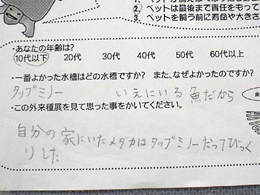 2. ペットは最後まで責任をもって
3. ペットを飼う前に寿命や大きさ
・あなたの年齢は?
10代以下 20代 30代 40代 50代 60代以上
・一番よかった水槽はどの水槽ですか? また、なぜよかったのですか?
タップミノー いえにいる魚だから
・この外来種展を見て思った事をかいてください。
自分の家にいたメダカはタップミノーだってびっく
りした